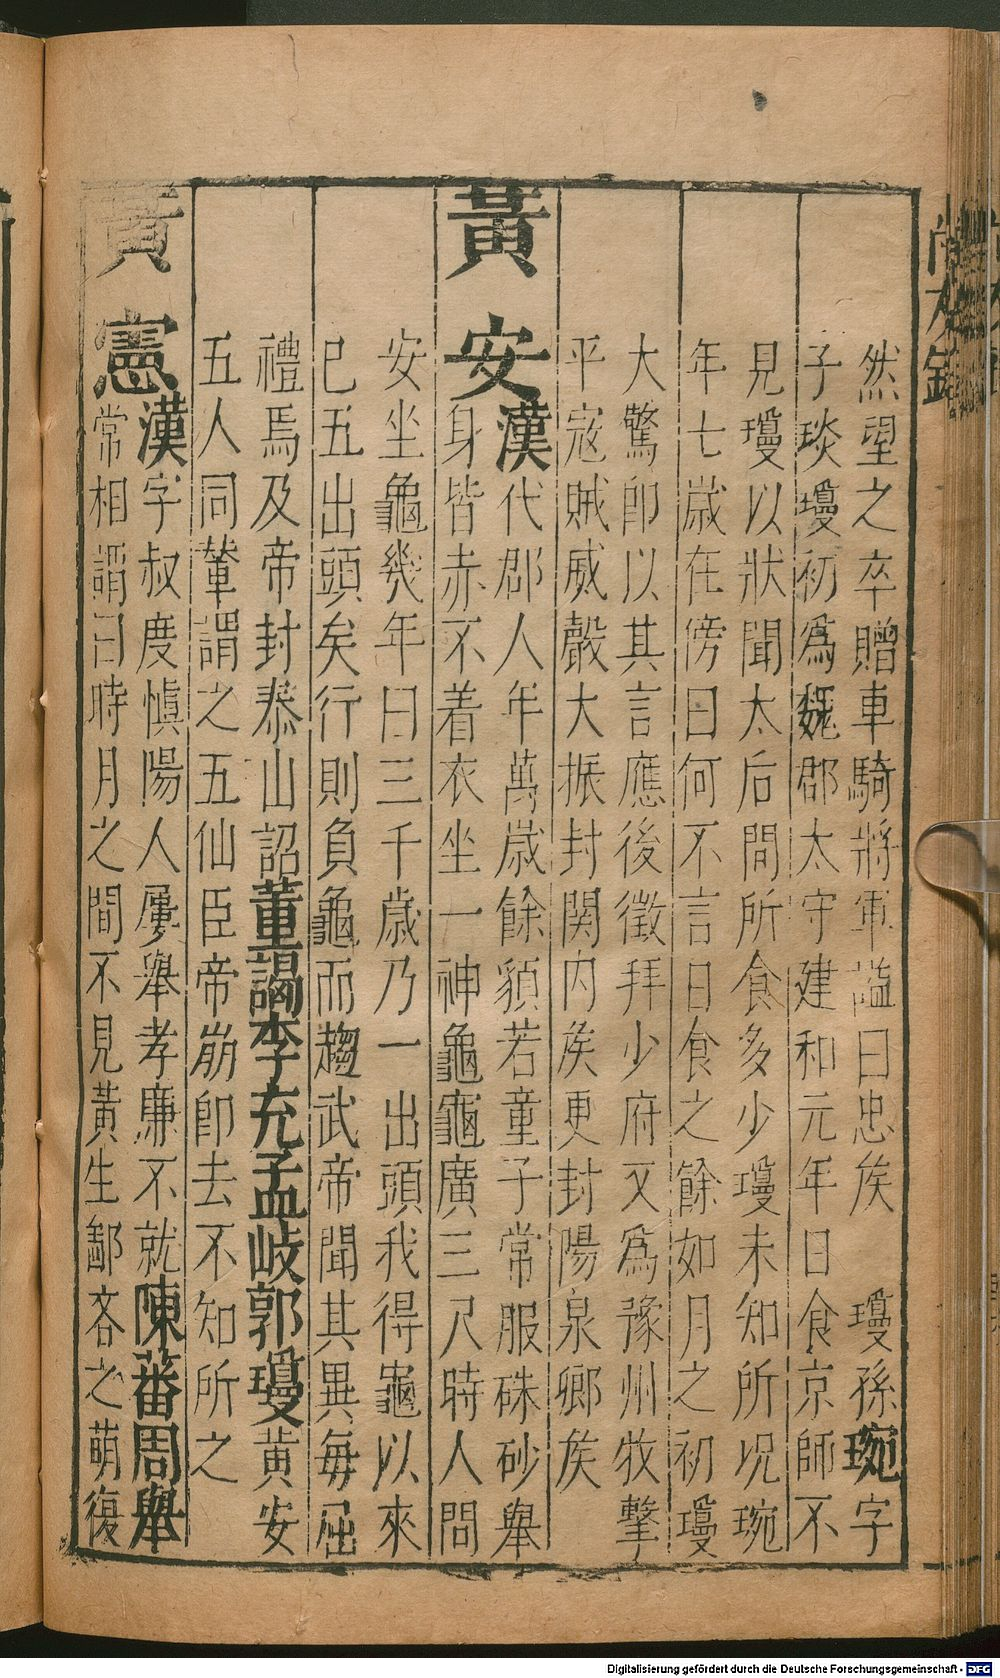 然望之卒贈車騎將軍謚曰忠矦　瓊孫琬字
子琰瓊初爲魏郡太守建和元年日食京師不
見瓊以狀聞太后問所食多少瓊未知所况琬
年七歲在傍曰何不言日食之餘如月之初瓊
大驚卽以其言應後徵拜少府又爲豫州牧擊
平寇賊威聲大振封関内矦更封陽泉鄉矦
黃安漢代郡人年萬歲餘貌若童子常服硃砂舉
身皆赤不着衣坐一神龜龜廣三尺時人問
安坐龜幾年曰三千歲乃一出頭我得龜以來
已五出頭矣行則負龜而趨武帝聞其異毎屈
禮焉及帝封泰山詔董謁李充孟岐郭瓊黃安
五人同輦謂之五仙臣帝崩卽去不知所之
黃憲漢字叔度愼陽人屢舉孝廉不就陳蕃周舉
常相謂曰時月之間不見黃生鄙吝之萌復
Digitalisierung gefördert durch die Deutsche Forschungsgemeinschaft - DFG